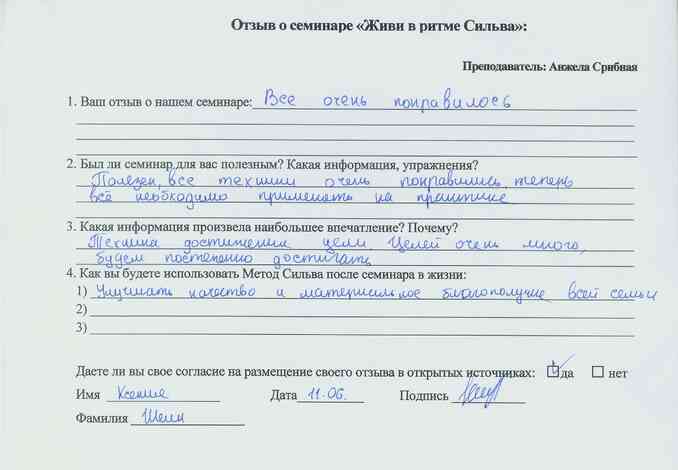 Отзыв о семинаре «Живи в ритме Сильва»:
Преподаватель: Анжела Срибная
1. Ваш отзыв о нашем семинаре: Все очень понравилось
2. Был ли семинар для вас полезным? Какая информация, упражнения?
Полезен, все техники очень понравились, теперь
всё необходимо применять на практике
3. Какая информация произвела наибольшее впечатление? Почему?
Техника достижения цели. Целей очень много,
будем постепенно достигать
4. Как вы будете использовать Метод Сильва после семинара в жизни:
1) Улучшать качество и материальное благополучие всей семьи
2)
3)
Даете ли вы свое согласие на размещение своего отзыва в открытых источниках: да нет
Имя Ксения Дата 11.06. Подпись
Фамилия